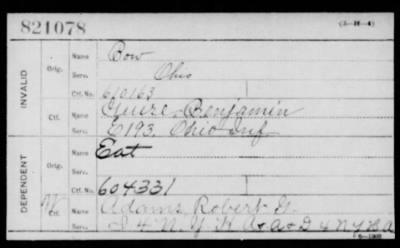 821078
(3-H-4)
INVALID
Orig.
Name Bow
Serv. Ohio
Ctf. No. 610163
Ctf.
Name Guise, Benjamin
Serv. E 193, Ohio Inf
DEPENDENT
Orig.
Name Eat
Serv.
Ctf. No. 604331
W
Ctf.
Name Adams, Robert G.
Serv. 4 N. Y H A & D 4 N Y H A